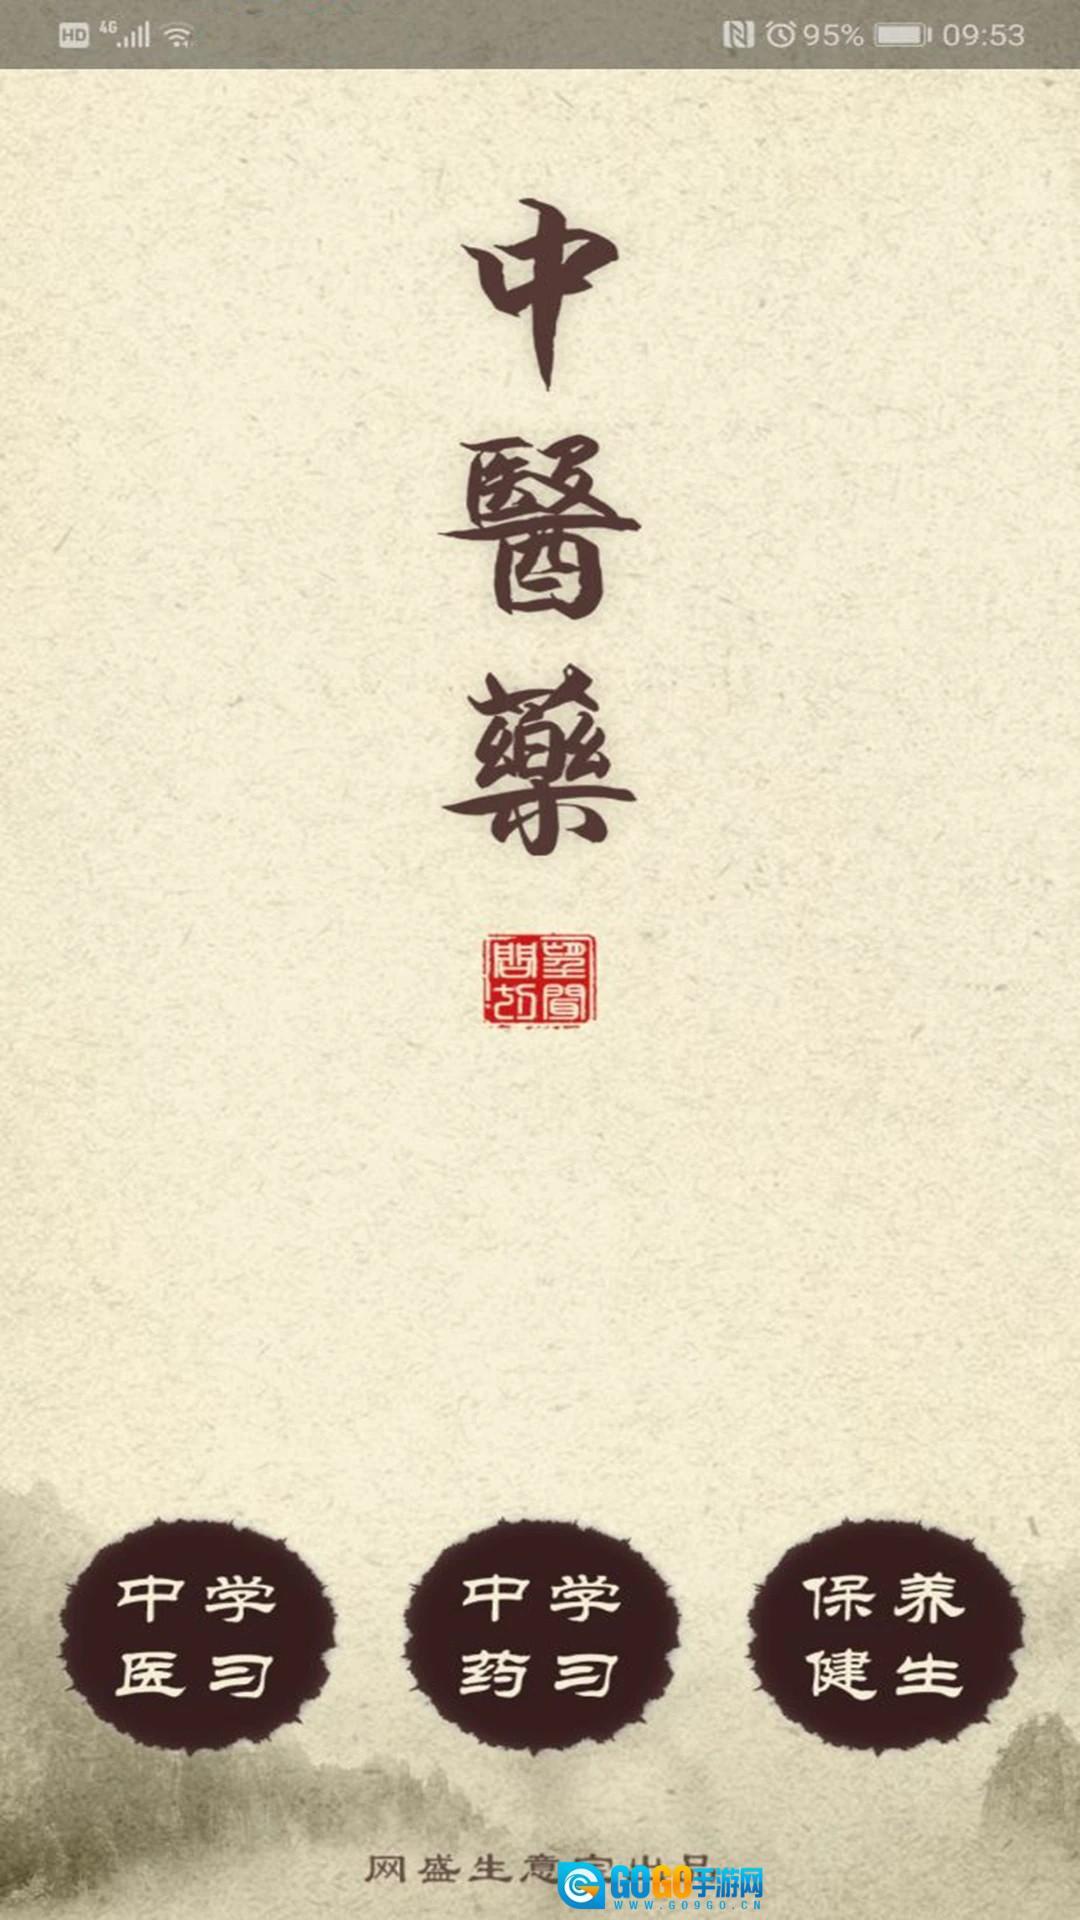 HD 4G 95% 09:53
中醫藥
望聞問切
中医学习
中药学习
保健养生
网盛生意宝出品
GOGO手游网
WWW.GO9GO.CN